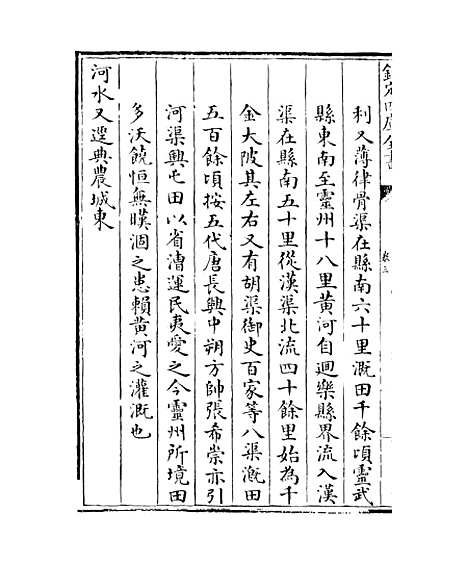 欽定四庫全書
卷三
利又薄律骨渠在縣南六十里溉田千餘頃靈武
縣東南至靈州十八里黃河自迴樂縣界流入漢
渠在縣南五十里從漢渠北流四十餘里始為千
金大陂其左右又有胡渠御史百家等八渠溉田
五百餘頃按五代唐長興中朔方帥張希崇亦引
河渠興屯田以省漕運民夷愛之今靈州所境田
多沃饒恒無暵涸之患賴黃河之灌溉也
河水又逕典農城東